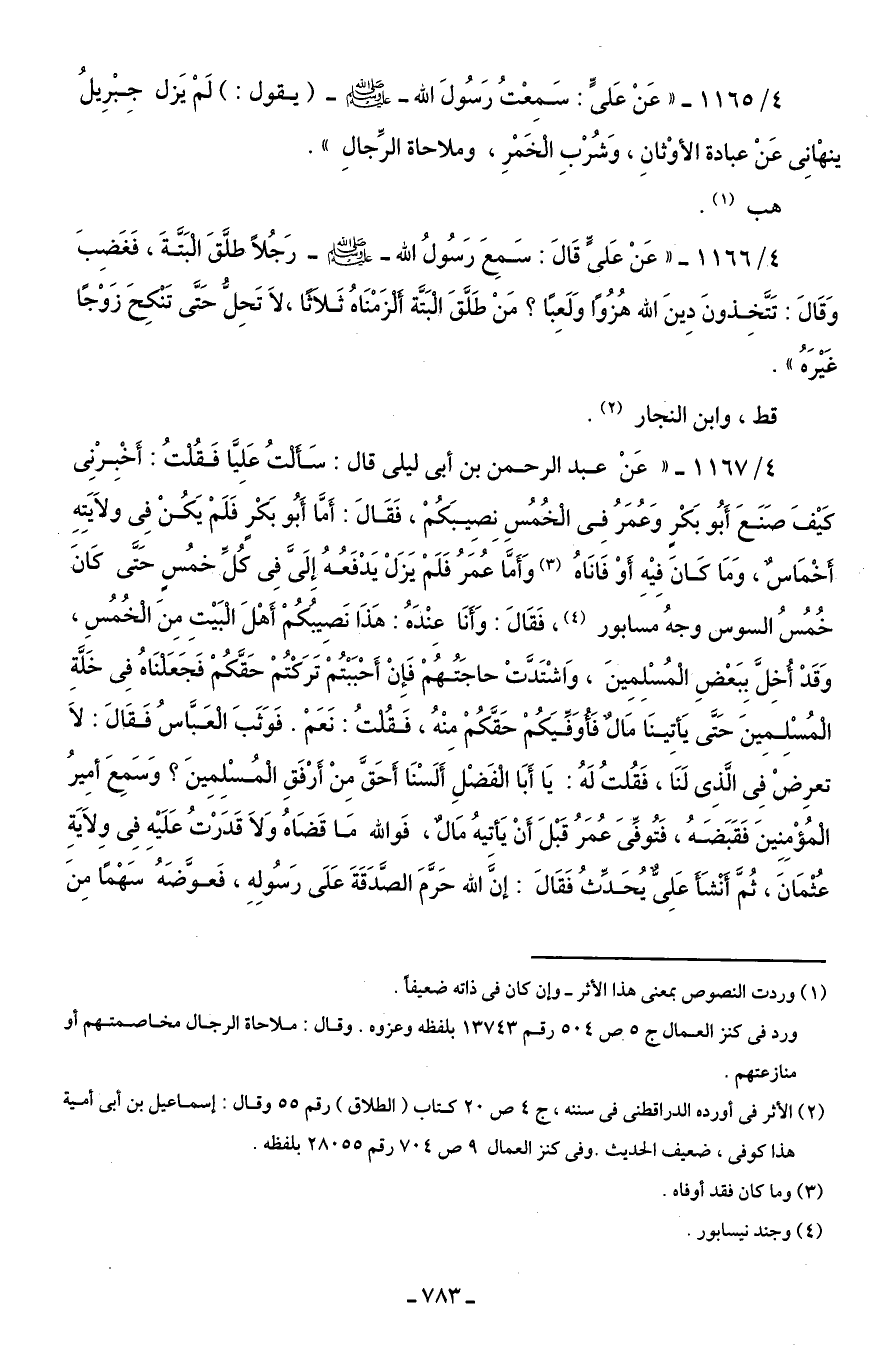 ٤/ ١١٦٥ ـ « عَنْ عَلىٍّ : سَمِعْتُ رَسُولَ الله ـ ﷺ ـ ( يقول : ) لَمْ يَزل جِبْرِيلُ
ينهْانِى عَنْ عبادة الأوْثانِ ، وَشُرْبِ الْخَمْرِ ، وملاحاة الرِّجالِ » .
هب (١) .
٤/ ١١٦٦ ـ « عَنْ عَلىٍّ قَالَ : سَمِعَ رَسُولُ الله ـ ﷺ ـ رَجُلاً طلَّقَ الْبَتَّةَ ، فَغَضِبَ
وَقَالَ : تَتَّخِذونَ دِينَ الله هُزُوًا وَلَعبًا ؟ مَنْ طَلَّقَ الْبَتَّة ألْزَمْنَاهُ ثَلاثًا ، لاَ تَحلُّ حَتَّى تَنْكِحَ زَوْجًا
غَيْرَهُ » .
قط ، وابن النجار (٢) .
٤/ ١١٦٧ ـ « عَنْ عبد الرحمن بن أبى ليلى قال : سَألْتُ عَلِيًا فَقُلْتُ : أَخْبِرْنِى
كَيْفَ صَنَعَ أَبُو بَكْرٍ وَعُمَرُ فِى الْخُمُسِ نصِيبَكُمْ ، فَقَالَ : أَمَّا أَبُو بَكْرٍ فَلَمْ يَكُنْ فِى ولاَيَتِهِ
أخْمَاسٌ ، وَمَا كَانَ فِيهِ أَوْ فَانَاهُ (٣) وَأَمَّا عُمَرُ فَلَمْ يَزَلْ يَدْفَعُهُ إِلَىَّ فِى كُلِّ خمُسٍ حَتَّى كَانَ
خُمُسُ السوس وجهُ مسابور (٤) ، فَقَالَ : وَأَنَا عنْدَهُ : هَذَا نَصِيبُكُمْ أَهْلَ الْبَيْتِ مِنَ الْخُمُسِ ،
وَقَدْ أُخلَّ بِبَعْضِ الْمُسْلِمينَ ، وَاشْتَدَّتْ حاجَتُهُمْ فَإِنْ أَحْبَبْتُمْ تَرَكْتُمْ حَقَّكُمْ فَجَعَلْنَاهُ فِى خَلَّةِ
الْمُسْلِمِينَ حَتَّى يَأتِينَا مَالٌ فَأُوَفِّيكُمْ حَقَّكُمْ مِنْهُ ، فَقُلْتُ : نَعَمْ . فَوَثَبَ الْعَبَّاسُ فَقَالَ : لاَ
تعرضْ فِى الَّذِى لَنَا ، فَقُلتُ لَهُ : يَا أَبَا الْفَضْلِ أَلَسْنَا أَحَقَّ مِنْ أَرْفَقِ الْمُسْلِمِينَ ؟ وَسَمِعَ أمِيرُ
الْمُؤْمِنِينَ فَقَبَضَهُ ، فَتُوفِّىَ عُمَرُ قَبْلَ أَنْ يَأتِيهُ مَالٌ ، فَوالله مَا قَضَاهُ وَلاَ قَدَرْتُ عَلَيْهِ فِى ولايَةِ
عُثْمَانَ ، ثُمَّ أَنْشَأَ عَلِىٌّ يُحَدِّثُ فَقَالَ : إِنَّ الله حَرَّمَ الصَّدَقَةَ عَلَى رَسُولِهِ ، فَعوَّضَهُ سَهْمًا مِنَ
(١) وردت النصوص بمعنى هذا الأثر ـ وإن كان فى ذاته ضعيفاً .
ورد فى كنز العمال ج ٥ ص ٥٠٤ رقم ١٣٧٤٣ بلفظه وعزوه . وقال : ملاحاة الرجال مخاصمتهم أو
منازعتهم .
(٢) الأثر فى أورده الدراقطنى فى سننه ، ج ٤ ص ٢٠ كتاب ( الطلاق ) رقم ٥٥ وقال : إسماعيل بن أبى أمية
هذا كوفى ، ضعيف الحديث .وفى كنز العمال ٩ ص ٧٠٤ رقم ٢٨٠٥٥ بلفظه .
(٣) وما كان فقد أوفاه .
(٤) وجند نيسابور .
ـ ٧٨٣ ـ